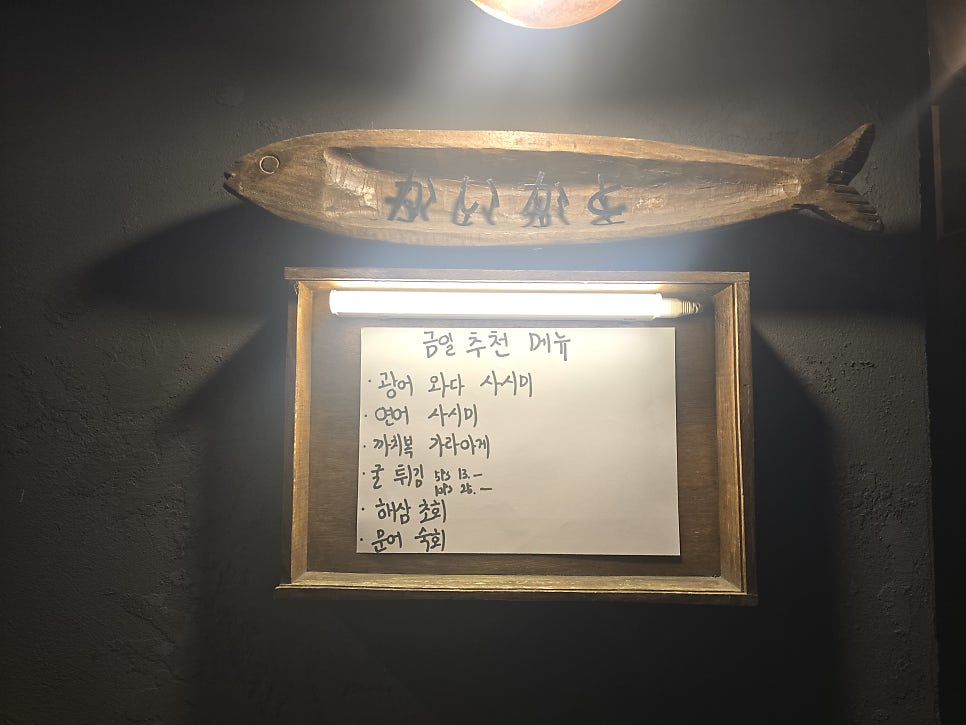 금일 추천 메뉴
· 광어 와다 사시미
· 연어 사시미
· 까치복 가라아게
· 굴 튀김 5ps 13.-
10ps 25.-
· 해삼 초회
· 문어 숙회